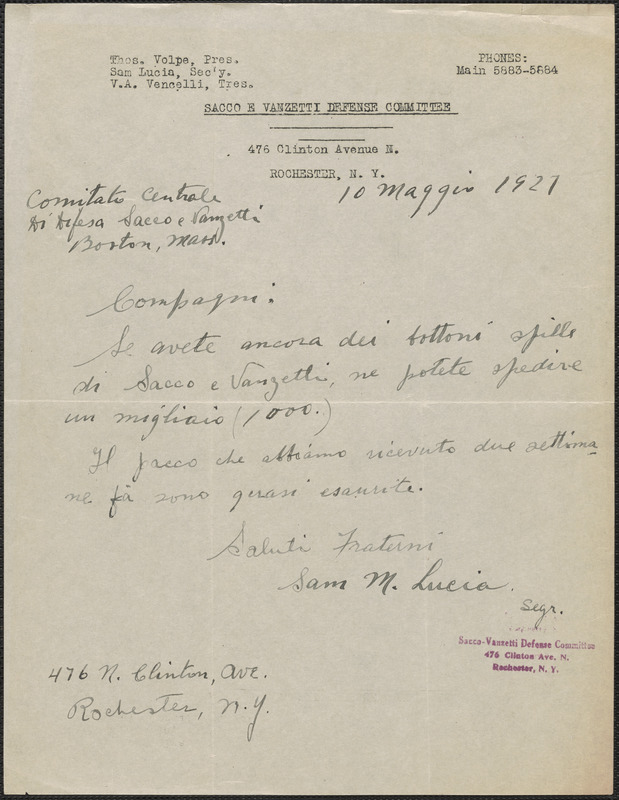 Thos. Volpe, Pres.
Sam Lucia, Sec'y.
V.A. Vencelli, Tres.
PHONES:
Main 5883-5884
SACCO E VANZETTI DEFENSE COMMITTEE
476 Clinton Avenue N.
ROCHESTER, N. Y.
10 Maggio 1927
Comitato Centrale
Di Difesa Sacco e Vanzetti
Boston, Mass.
Compagni:
Se avete ancora dei bottoni spille
di Sacco e Vanzetti, ne potete spedire
un migliaio (1000.)
Il pacco che abbiamo ricevuto due settima-
ne fà sono quasi esaurite.
Saluti Fraterni
Sam M. Lucia.
Segr.
Sacco-Vanzetti Defense Committee
476 Clinton Ave. N.
Rochester, N. Y.
476 N. Clinton, Ave.
Rochester, N.Y.